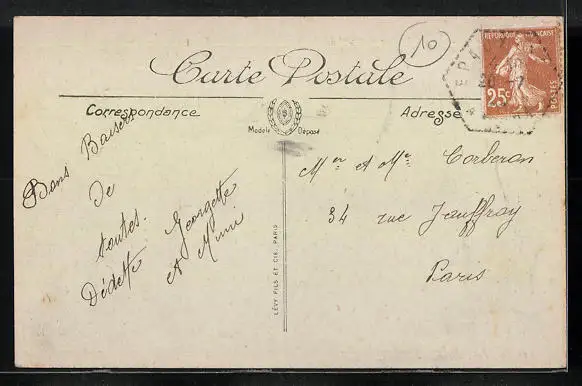 10
RÉPUBLIQUE FRANÇAISE
25c
POSTES
Carte Postale
Correspondance
Adresse
Modèle Déposé
Bons Baisers
de
toutes.
Dédette
Georgette
et Mimi
LÉVY FILS ET CIE, PARIS
Mr et Me Corberon
34 rue Jouffroy
Paris